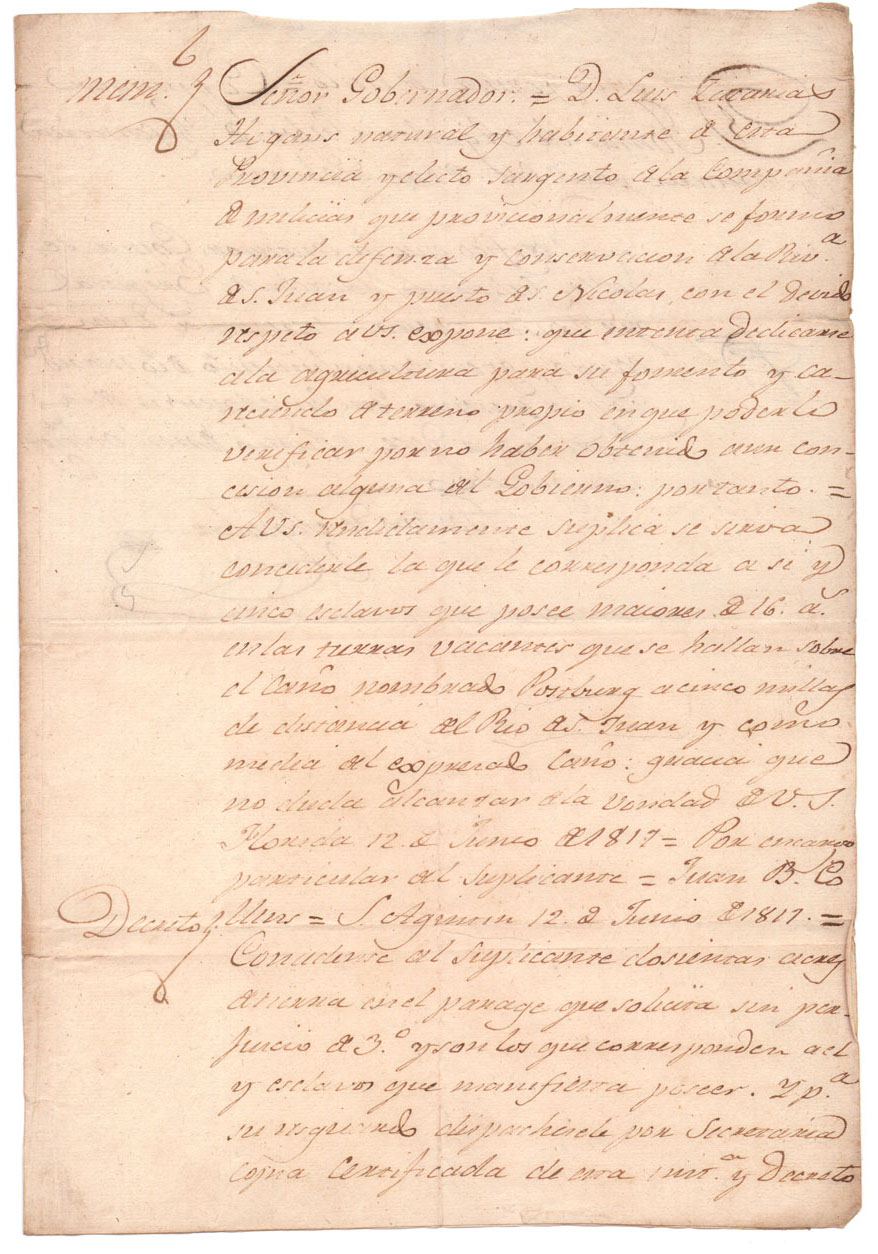 mem.l Señor Gobernador. = D. Luis Zacarias
Hogans natural y havitante de esta
Provincia y electo sargento de la Compañia
de milicias que provicionalmente se formo
para la defenza y conservacion de la Riv.a
de S. Juan y puesto de S. Nicolas, con el devido
respeto a VS. expone: que intenta dedicarse
a la agricultura para su fomento y ca-
reciendo de terreno propio en que poderlo
verificar por no haber obtenido aun con-
cesion alguna del Gobierno: por tanto. =
A VS. rendidamente suplica se sirva
concederle la que le corresponda a si y
cinco esclavos que posee maiores de 16. a.s
en las tierras vacantes que se hallan sobre
el Caño nombrado a cinco millas
de distancia del Rio de S. Juan y como
media del expresado Caño: gracia que
no duda alcanzar de la vondad de V. S.
Florida 12. de Junio de 1817 = Por encargo
particular del suplicante = Juan B. Co
Decreto llens = S. Agustin 12. de Junio de 1817. =
Concedense al suplicante dosientas acres
de tierra en el parage que solicita sin per-
juicio de 3.o y son los que corresponden a el
y esclavos que manifiesta poseer. Y p.a
su resguardo despachesele por Secretaria
copia Certificada de esta inst.a y Decreto